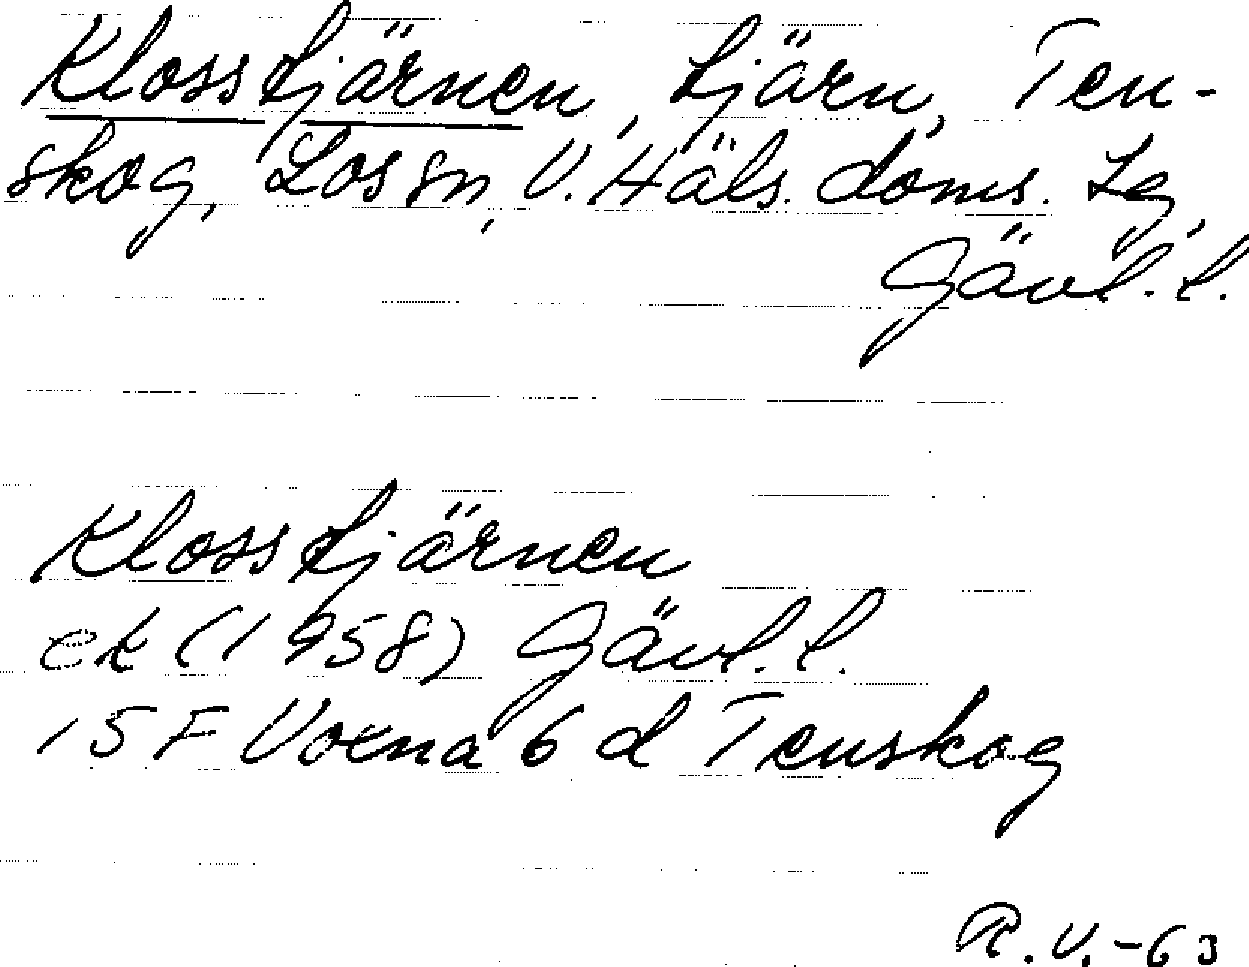 Klosstjärnen, tjärn, Ten-
skog, Los sn, V. Häls. doms. Lg,
Gävl. l.
Klosstjärnen
ek (1958) Gävl. l.
15 F Voxna 6 d Tenskog
R. V. -63